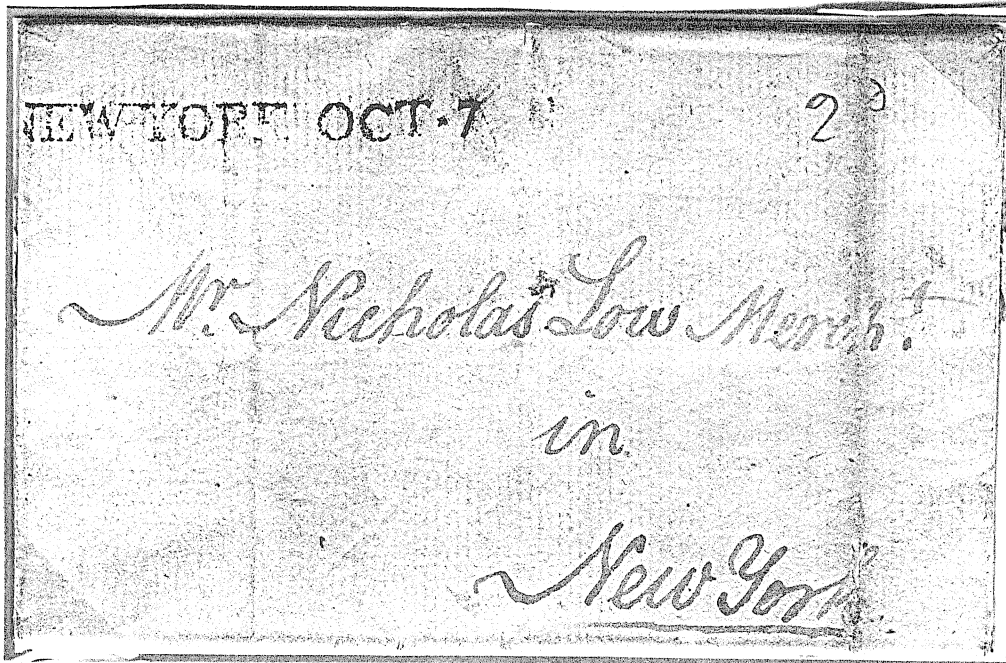 NEW-YORK OCT·7
2 D
Mr. Nicholas Low Merch.t
in
New York.